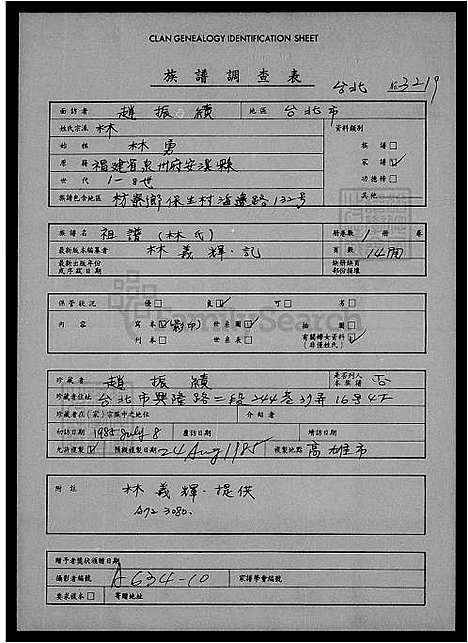 CLAN GENEALOGY IDENTIFICATION SHEET
族譜調查表
台北 3219
面訪者 趙振績 地區 台北市
姓氏宗派 林 資料類別
始祖 林勇 族譜
原籍 福建省泉州府安溪縣 家譜
世代 1-8世 功德榜
族譜包含地區 枋寮鄉保生村海邊路132号 其他
族譜名 祖譜(林氏) 冊卷數 1 冊 卷
最新版本編纂者 林義輝·記 頁數 14面
最新出版年份或序跋日期 缺册缺頁部份損壞
保管狀況 優 良 可 劣
內容 寫本 影印 世系圖 插圖
刊本 世系表 有關婦女資料(非僅姓氏)
珍藏者 趙振績 是否列入本族譜 否
珍藏者住址 台北市興隆路二段244巷39弄16号4F
珍藏者在(家)宗族中之地位 介紹者
初訪日期 1985 July 8 應訪日期 增訪日期
允許複製 預擬複製日期 24 Aug 1985 複製地點 高雄市
附註 林義輝·提供
A72 3080.
贈予者獎狀頒贈日期
攝影者編號 A634-10 家譜學會編號
要求複本 寄贈地址
FamilySearch